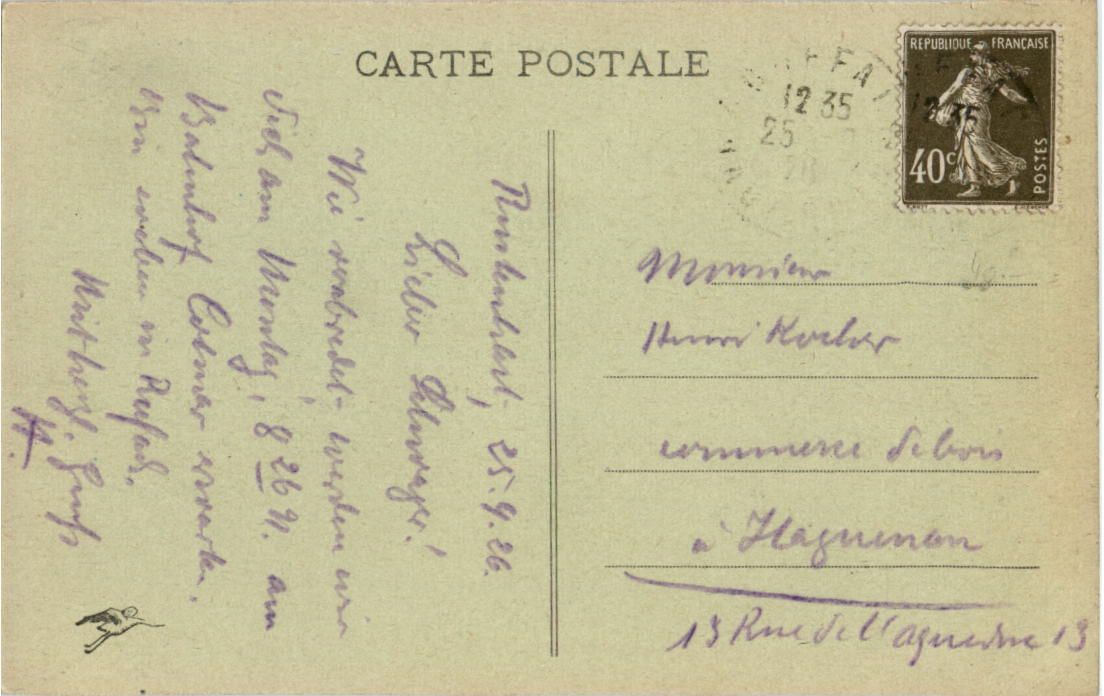 CARTE POSTALE
REPUBLIQUE FRANÇAISE
40c
POSTES
12 35
25
25.9.26.
Lieber Schwager!
Wie verabredet werden wir
Dich am Montag, 8 26 N. am
Bahnhof Colmar erwarten.
Bin soeben in Rufach.
Mit herzl. Gruß
Monsieur
Henri Kocher
commerce de bois
à Haguenau
13 Rue de l'aqueduc 13